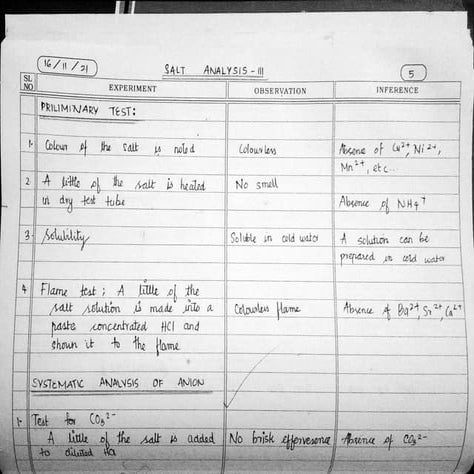 16/11/21
SALT ANALYSIS - III
5
SL NO
EXPERIMENT
OBSERVATION
INFERENCE
PRILIMINARY TEST:
1. Colour of the salt is noted
Colourless
Absence of Cu²⁺, Ni²⁺,
Mn²⁺, etc..
2 A little of the salt is heated
in dry test tube
No smell
Absence of NH4⁺
3. Solubility
Soluble in cold water
A solution can be
prepared in cold water
4 Flame test; A little of the
salt solution is made into a
paste concentrated HCl and
shown it to the flame
Colourless flame
Absence of Ba²⁺, Sr²⁺, Ca²⁺
SYSTEMATIC ANALYSIS OF ANION
1. Test for CO3²⁻
A little of the salt is added
to diluted HCl
No brisk effervesence
Absence of CO3²⁻